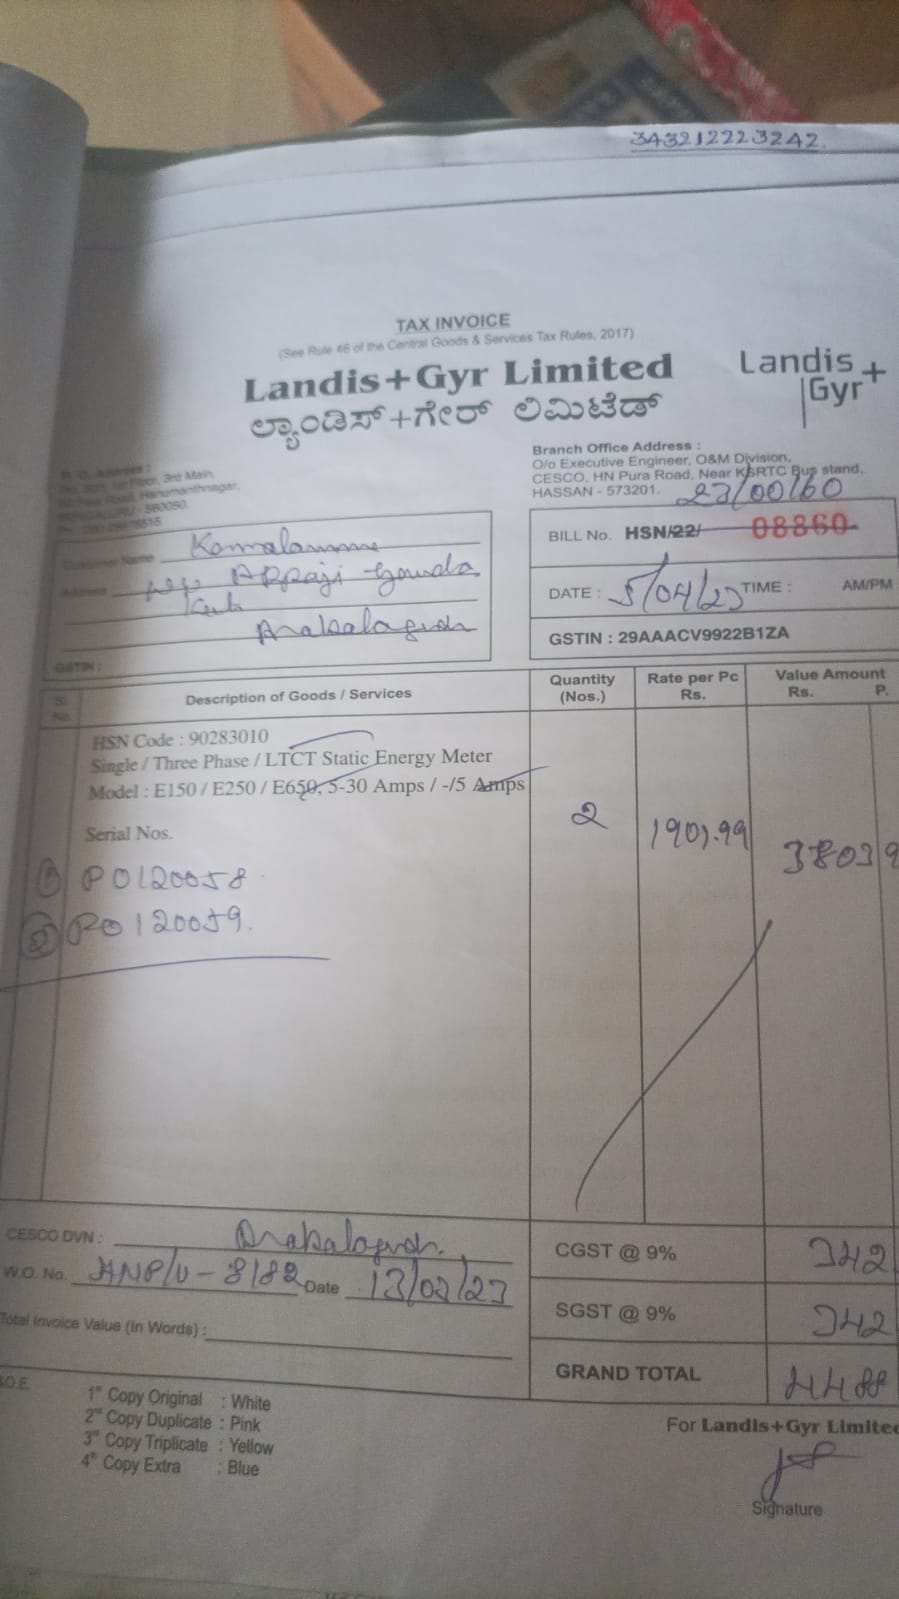 343212223242
TAX INVOICE
(See Rule 46 of the Central Goods & Services Tax Rules, 2017)
Landis+Gyr Limited
Landis+Gyr
ಲ್ಯಾಂಡಿಸ್+ಗೇರ್ ಲಿಮಿಟೆಡ್
3rd Main,
Hanumanthnagar,
Branch Office Address :
O/o Executive Engineer, O&M Division,
CESCO, HN Pura Road, Near KSRTC Bus stand,
HASSAN - 573201.
23/00160
Customer Name Komalamma
Address W/o Appaji Gowda
Arakalagudu
GSTIN :
BILL No. HSN/22/ 08860
DATE : 5/04/23 TIME : AM/PM
GSTIN : 29AAACV9922B1ZA
Sl. No.
Description of Goods / Services
Quantity (Nos.)
Rate per Pc Rs.
Value Amount Rs. P.
HSN Code : 90283010
Single / Three Phase / LTCT Static Energy Meter
Model : E150 / E250 / E650, 5-30 Amps / -/5 Amps
2 1901.99 3803 9
Serial Nos.
1 P0120058
2 P0120059.
CESCO DVN : Arakalagudu
W.O. No. 8182 Date 13/03/23
Total Invoice Value (In Words) :
CGST @ 9% 342
SGST @ 9% 342
GRAND TOTAL 4488
1st Copy Original : White
2nd Copy Duplicate : Pink
3rd Copy Triplicate : Yellow
4th Copy Extra : Blue
For Landis+Gyr Limited
Signature